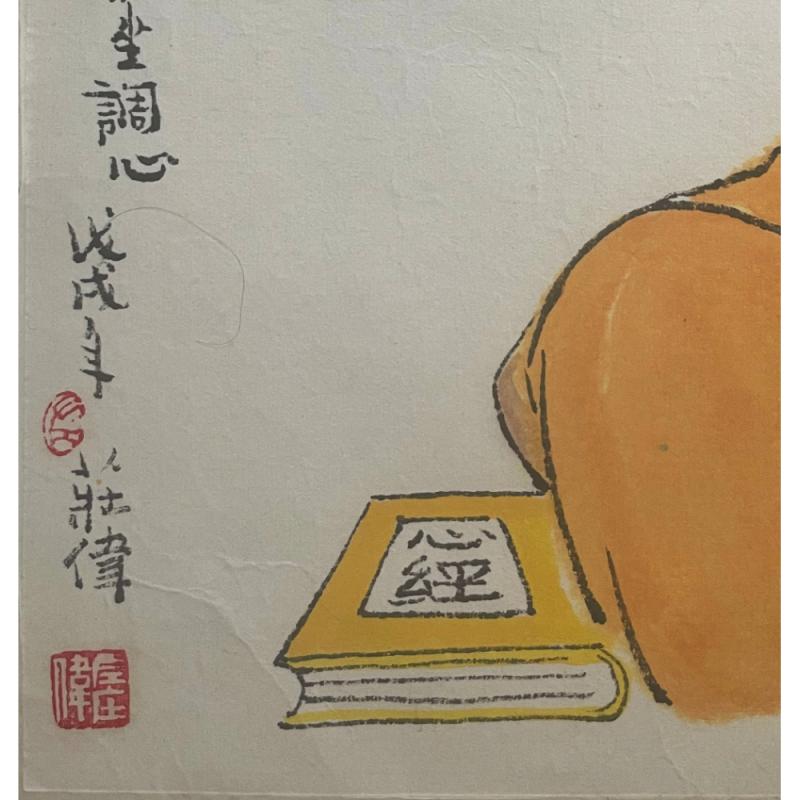 坐調心
戊戌年
莊偉
心經
莊偉